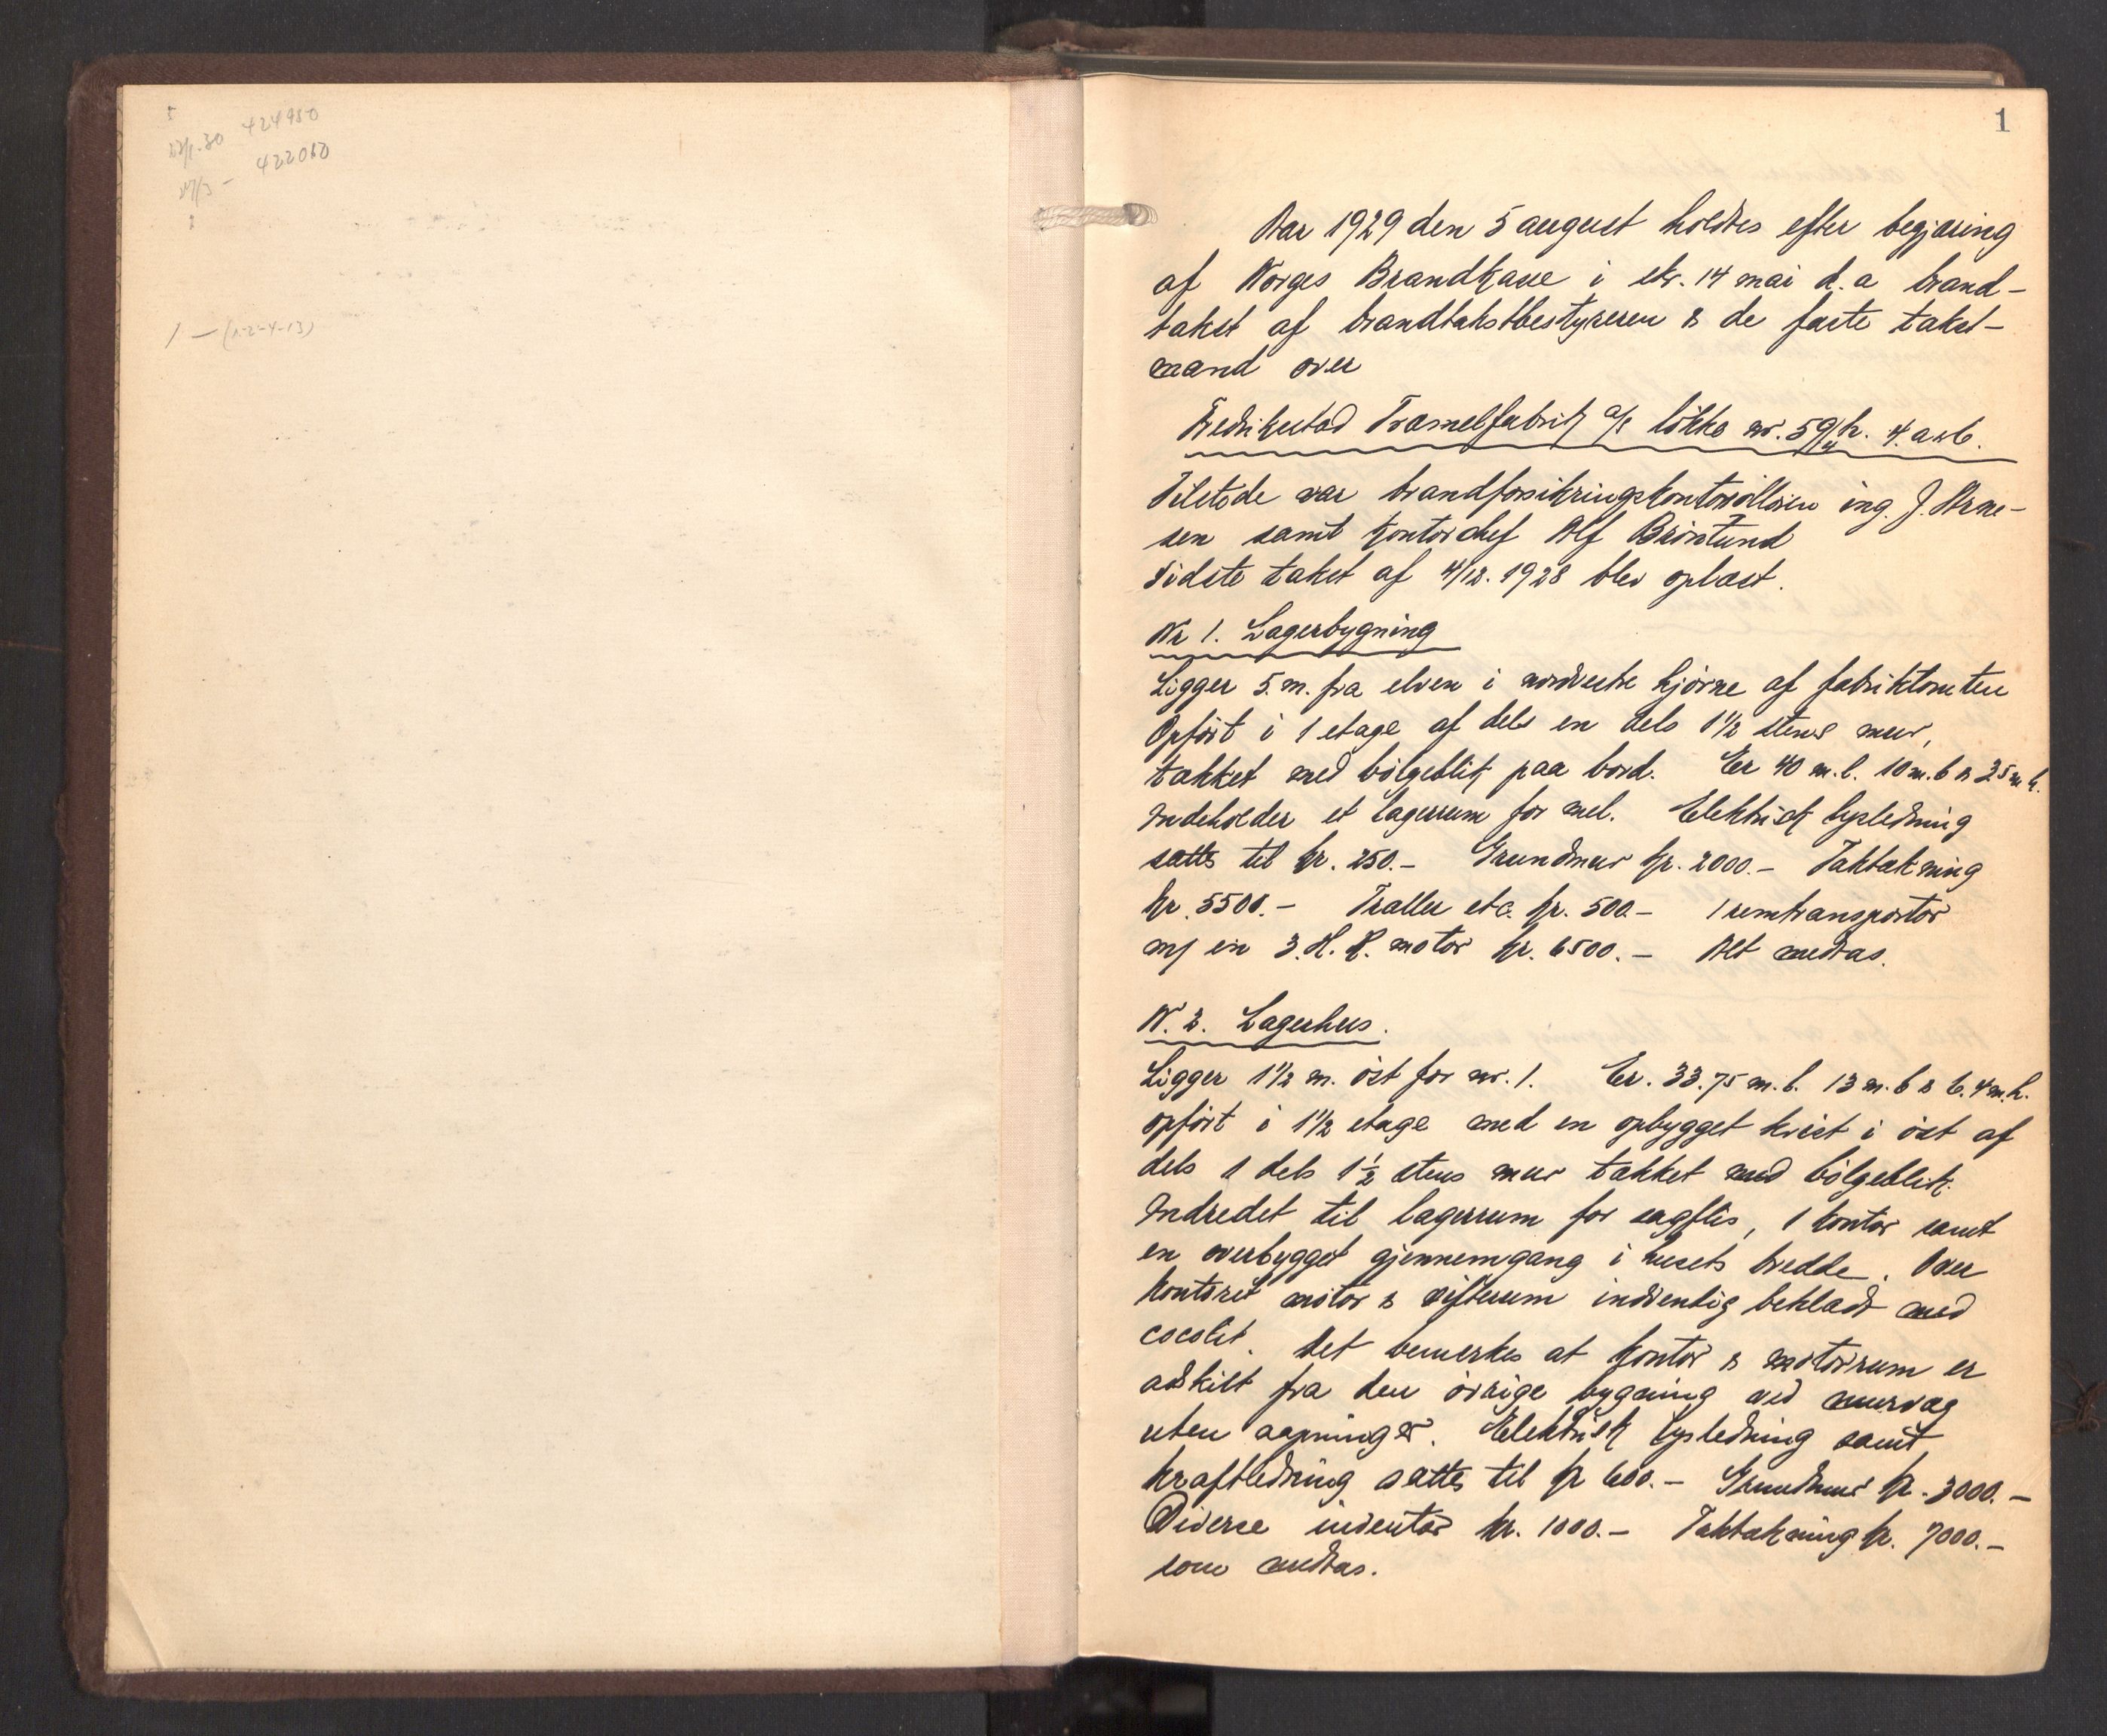 424950
422060
1 — (1-2-4-13)
1
Aar 1929 den 5 august holdtes efter begjæring
af Norges Brandkasse i skr. 14 mai d.a brand-
takst af brandtakstbestyreren & de faste takst-
mænd over
Fredrikstad Træmelfabrik a/s løkke nr. 59
Tilstede var brandforsikringskontrolløren ing. J. Arne-
sen samt kontorchef Alf
Sidste takst af 4/12. 1928 blev oplæst.
Nr 1. Lagerbygning
Ligger 5. m. fra elven i nordvestre hjørne af fabriktomten
Opført i 1 etage af dels en dels 1½ stens mur,
tækket med bølgeblik paa bord. Er 40 m. l. 10 m. b & 3.5 m h.
Indeholder et lagerrum for mel. Elektrisk lysledning
sættes til kr. 250.- Grundmur kr. 2000.- Taktækning
kr. 5500.- Traller etc. kr. 500- 1 remtransportør
m/ en 3. H. K. motor kr. 6500.- Alt medtas.
N. 2. Lagerhus.
Ligger 1½ m. øst for nr. 1. Er. 33.75 m. l. 13 m. b & 6.4 m. h.
opført i 1½ etage med en opbygget kvist i øst af
dels 1 dels 1½ stens mur tækket med bølgeblik.
Indredet til lagerrum for sagflis, 1 kontor samt
en overbygget gjennemgang i husets bredde. Over
kontoret motor & vifterum indvendig beklædt med
cocolit. Det bemerkes at kontor & motorrum er
adskilt fra den øvrige bygning ved murvæg
uten aapninger. Elektrisk lysledning samt
kraftledning sættes til kr 600.- Grundmur kr. 3000.-
Diverse inventar kr. 1000.- Taktækning kr. 7000.-
som medtas.